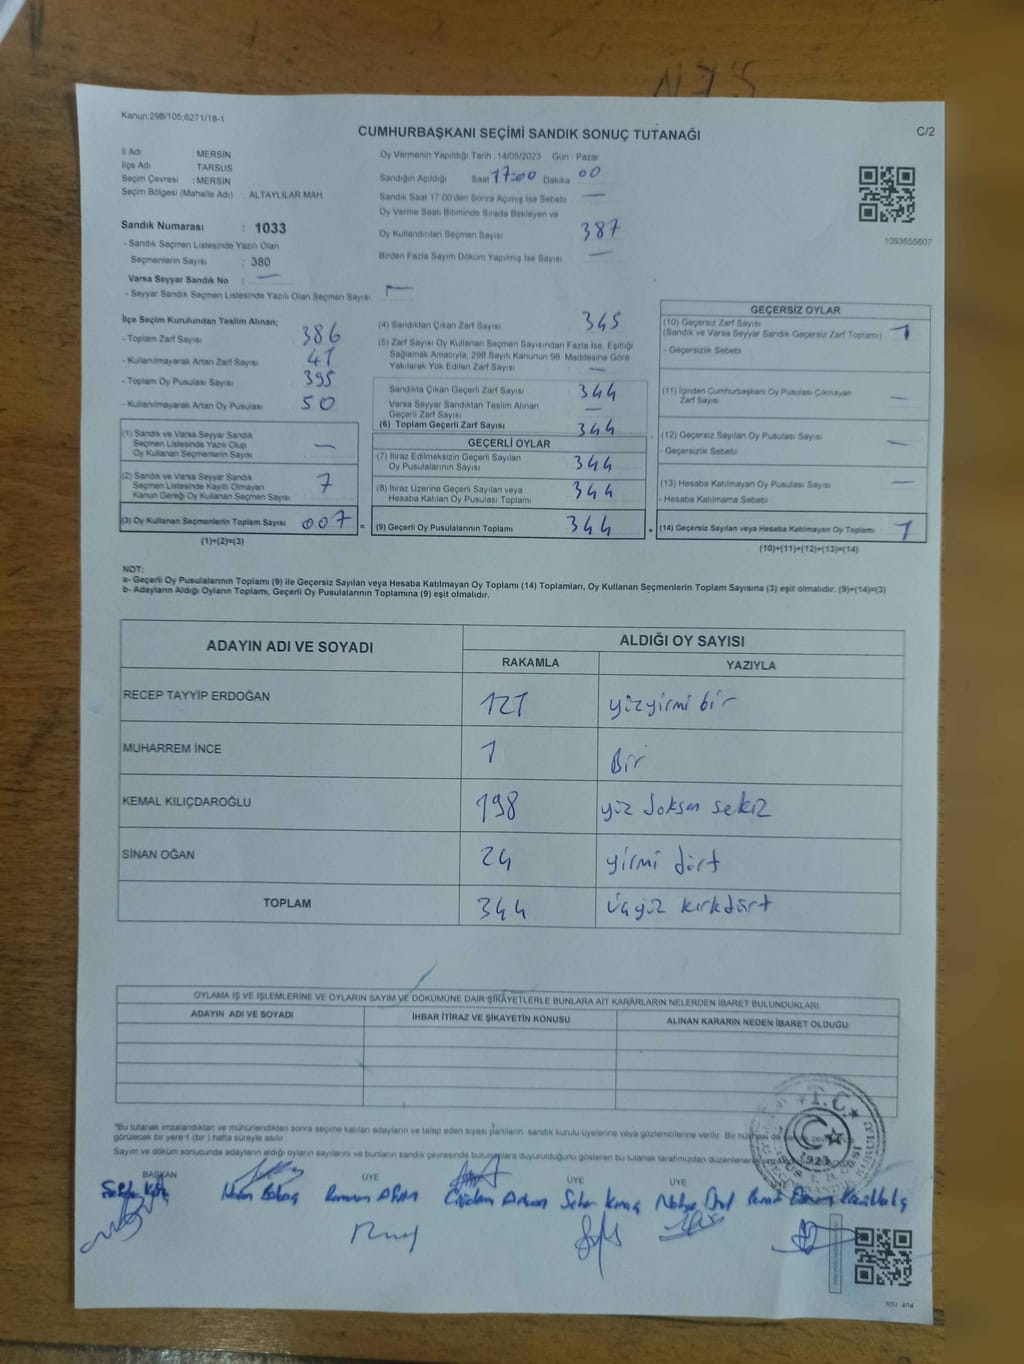 Kanun;298/105;6271/18-1
CUMHURBAŞKANI SEÇİMİ SANDIK SONUÇ TUTANAĞI
C/2
İl Adı MERSİN
İlçe Adı TARSUS
Seçim Çevresi : MERSİN
Seçim Bölgesi (Mahalle Adı) ALTAYLILAR MAH.
Oy Vermenin Yapıldığı Tarih :14/05/2023 Gün : Pazar
Sandığın Açıldığı Saat 17:00 Dakika 00
Sandık Saat 17:00'den Sonra Açılmış İse Sebebi —
Oy Verme Saati Bitiminde Sırada Bekleyen ve
Oy Kullandırılan Seçmen Sayısı 387
Birden Fazla Sayım Döküm Yapılmış İse Sayısı —
1093655607
Sandık Numarası : 1033
- Sandık Seçmen Listesinde Yazılı Olan
Seçmenlerin Sayısı : 380
Varsa Seyyar Sandık No : —
- Seyyar Sandık Seçmen Listesinde Yazılı Olan Seçmen Sayısı: —
İlçe Seçim Kurulundan Teslim Alınan;
- Toplam Zarf Sayısı 386
- Kullanılmayarak Artan Zarf Sayısı 41
- Toplam Oy Pusulası Sayısı 395
- Kullanılmayarak Artan Oy Pusulası 50
(1) Sandık ve Varsa Seyyar Sandık
Seçmen Listesinde Yazılı Olup
Oy Kullanan Seçmenlerin Sayısı —
(2) Sandık ve Varsa Seyyar Sandık
Seçmen Listesinde Kayıtlı Olmayan
Kanun Gereği Oy Kullanan Seçmen Sayısı 7
(3) Oy Kullanan Seçmenlerin Toplam Sayısı 007
(1)+(2)=(3)
(4) Sandıktan Çıkan Zarf Sayısı 345
(5) Zarf Sayısı Oy Kullanan Seçmen Sayısından Fazla İse, Eşitliği
Sağlamak Amacıyla, 298 Sayılı Kanunun 98. Maddesine Göre
Yakılarak Yok Edilen Zarf Sayısı —
Sandıkta Çıkan Geçerli Zarf Sayısı 344
Varsa Seyyar Sandıktan Teslim Alınan
Geçerli Zarf Sayısı —
(6) Toplam Geçerli Zarf Sayısı 344
GEÇERLİ OYLAR
(7) İtiraz Edilmeksizin Geçerli Sayılan
Oy Pusulalarının Sayısı 344
(8) İtiraz Üzerine Geçerli Sayılan veya
Hesaba Katılan Oy Pusulası Toplamı 344
= (9) Geçerli Oy Pusulalarının Toplamı 344
GEÇERSİZ OYLAR
(10) Geçersiz Zarf Sayısı
(Sandık ve Varsa Seyyar Sandık Geçersiz Zarf Toplamı) 1
- Geçersizlik Sebebi
(11) İçinden Cumhurbaşkanı Oy Pusulası Çıkmayan
Zarf Sayısı —
(12) Geçersiz Sayılan Oy Pusulası Sayısı —
- Geçersizlik Sebebi
(13) Hesaba Katılmayan Oy Pusulası Sayısı —
- Hesaba Katılmama Sebebi
+ (14) Geçersiz Sayılan veya Hesaba Katılmayan Oy Toplamı 1
(10)+(11)+(12)+(13)=(14)
NOT:
a- Geçerli Oy Pusulalarının Toplamı (9) ile Geçersiz Sayılan veya Hesaba Katılmayan Oy Toplamı (14) Toplamları, Oy Kullanan Seçmenlerin Toplam Sayısına (3) eşit olmalıdır. (9)+(14)=(3)
b- Adayların Aldığı Oyların Toplamı, Geçerli Oy Pusulalarının Toplamına (9) eşit olmalıdır.
ADAYIN ADI VE SOYADI ALDIĞI OY SAYISI
RAKAMLA YAZIYLA
RECEP TAYYİP ERDOĞAN 121 yüzyirmi bir
MUHARREM İNCE 1 Bir
KEMAL KILIÇDAROĞLU 198 yüz doksan sekiz
SİNAN OĞAN 24 yirmi dört
TOPLAM 344 üçyüz kırkdört
OYLAMA İŞ VE İŞLEMLERİNE VE OYLARIN SAYIM VE DÖKÜMÜNE DAİR ŞİKAYETLERLE BUNLARA AİT KARARLARIN NELERDEN İBARET BULUNDUKLARI
ADAYIN ADI VE SOYADI İHBAR İTİRAZ VE ŞİKAYETİN KONUSU ALINAN KARARIN NEDEN İBARET OLDUĞU
*Bu tutanak imzalandıktan ve mühürlendikten sonra seçime katılan adayların ve talep eden siyasi partilerin sandık kurulu üyelerine veya gözlemcilerine verilir. Bir
görülecek bir yere 1 (bir) hafta süreyle asılır.
Sayım ve döküm sonucunda adayların aldığı oyların sayılarını ve bunların sandık çevresinde bulunanlara duyurulduğunu gösteren bu tutanak tarafımızdan
T.C.
BAŞKAN ÜYE ÜYE ÜYE